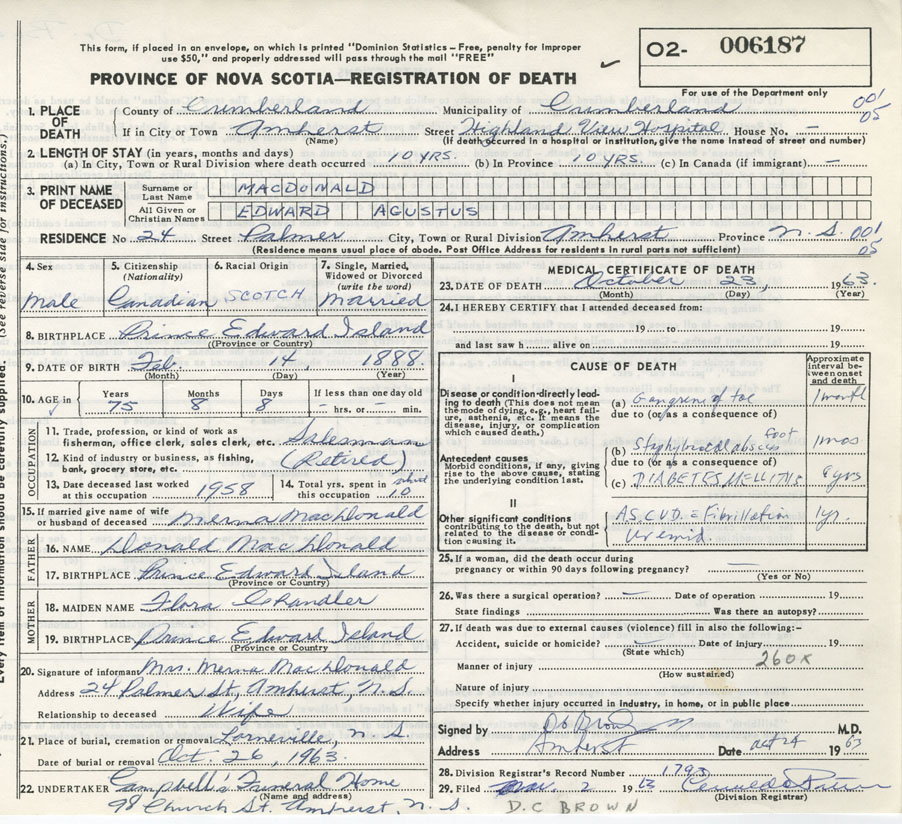 This form, if placed in an envelope, on which is printed "Dominion Statistics - Free, penalty for improper
use $50," and properly addressed will pass through the mail "FREE"
O2- 006187
PROVINCE OF NOVA SCOTIA—REGISTRATION OF DEATH
For use of the Department only
1. PLACE OF DEATH County of Cumberland Municipality of Cumberland 001
If in City or Town Amherst Street Highland View Hospital House No. — 05
(Name) (If death occurred in a hospital or institution, give the name instead of street and number)
2. LENGTH OF STAY (in years, months and days)
(a) In City, Town or Rural Division where death occurred 10 YRS. (b) In Province 10 YRS. (c) In Canada (if immigrant) —
3. PRINT NAME OF DECEASED Surname or Last Name MACDONALD
All Given or Christian Names EDWARD AGUSTUS
RESIDENCE No 24 Street Palmer City, Town or Rural Division Amherst Province N. S. 001
(Residence means usual place of abode. Post Office Address for residents in rural parts not sufficient) 05
4. Sex Male
5. Citizenship (Nationality) Canadian
6. Racial Origin SCOTCH
7. Single, Married, Widowed or Divorced (write the word) Married
8. BIRTHPLACE Prince Edward Island
(Province or Country)
9. DATE OF BIRTH Feb. 14 1888
(Month) (Day) (Year)
10. AGE in Years 75 Months 8 Days 8 If less than one day old – hrs. or – min.
OCCUPATION
11. Trade, profession, or kind of work as fisherman, office clerk, sales clerk, etc. Salesman
12. Kind of industry or business, as fishing, bank, grocery store, etc. (Retired)
13. Date deceased last worked at this occupation 1958
14. Total yrs. spent in this occupation 10
15. If married give name of wife or husband of deceased Merna MacDonald
FATHER
16. NAME Donald MacDonald
17. BIRTHPLACE Prince Edward Island
(Province or Country)
MOTHER
18. MAIDEN NAME Flora Chandler
19. BIRTHPLACE Prince Edward Island
(Province or Country
20. Signature of informant Mrs. Merna MacDonald
Address 24 Palmer St, Amherst, N. S.
Relationship to deceased Wife
21. Place of burial, cremation or removal Lorneville, N. S.
Date of burial or removal Oct. 26, 1963.
22. UNDERTAKER Campbell's Funeral Home
(Name and address)
98 Church St. Amherst, N. S.
MEDICAL CERTIFICATE OF DEATH
23. DATE OF DEATH October 23, 1963.
(Month) (Day) (Year)
24. I HEREBY CERTIFY that I attended deceased from:
19 to 19
and last saw h alive on 19
CAUSE OF DEATH
Approximate interval between onset and death
I
Disease or condition directly leading to death (This does not mean the mode of dying, e.g., heart failure, asthenia, etc. It means the disease, injury, or complication which caused death.)
(a) Gangrene of toe 1 month
due to (or as a consequence of)
Antecedent causes
Morbid conditions, if any, giving rise to the above cause, stating the underlying condition last.
(b) Staphylococcal abscess foot 1 mos
due to (or as a consequence of)
(c) DIABETES MELLITUS 8 yrs
II
Other significant conditions contributing to the death, but not related to the disease or condition causing it.
A.S.C.V.D. = Fibrillation 1 yr.
25. If a woman, did the death occur during pregnancy or within 90 days following pregnancy? —
(Yes or No)
26. Was there a surgical operation? — Date of operation 19
State findings Was there an autopsy?
27. If death was due to external causes (violence) fill in also the following:-
Accident, suicide or homicide? — Date of injury 19
(State which)
Manner of injury 260X
(How sustained)
Nature of injury
Specify whether injury occurred in Industry, in home, or in public place
Signed by D C Brown M.D.
Address Amherst Date Oct 24 1963
28. Division Registrar's Record Number 1793
29. Filed Nov. 2 1963
(Division Registrar)
D.C BROWN
(See reverse side for instructions.)
Every item of information should be carefully supplied.